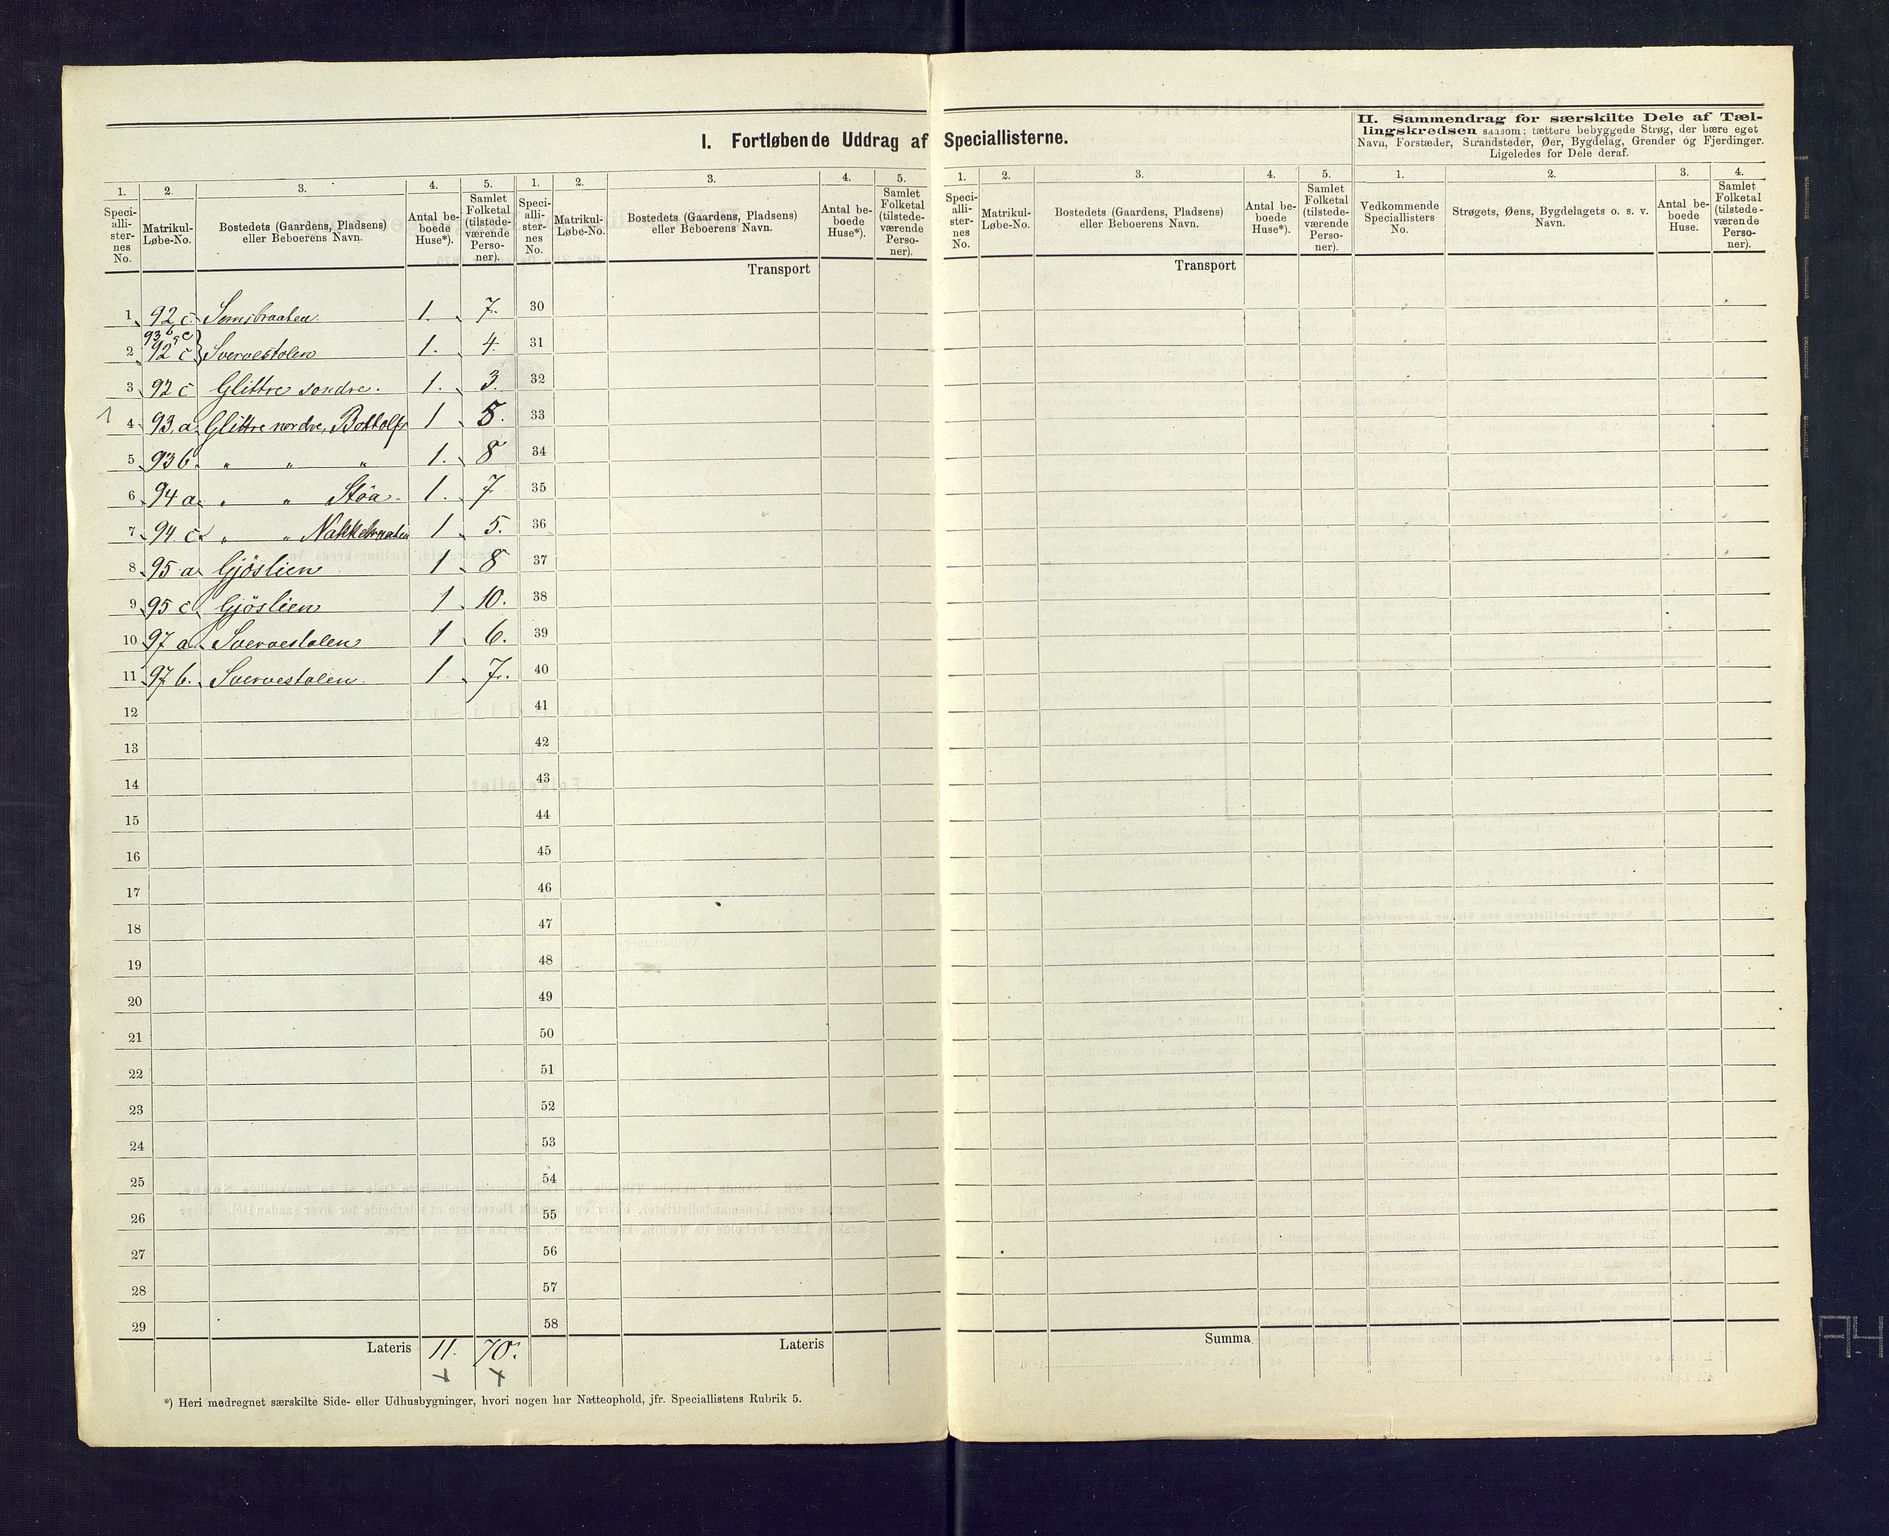 I. Fortløbende Uddrag af Speciallisterne.
II. Sammendrag for særskilte Dele af Tæl-
lingskredsen saasom: tættere bebyggede Strøg, der bære eget
Navn, Forstæder, Strandsteder, Øer, Bygdelag, Grender og Fjerdinger.
Ligeledes for Dele deraf.
1. 2. 3. 4. 5. 1. 2. 3. 4. 5. 1. 2. 3. 4. 5. 1. 2. 3. 4.
Speci-alli-ster-nes No. Matrikul-Løbe-No. Bostedets (Gaardens, Pladsens) eller Beboerens Navn. Antal be-boede Huse*). Samlet Folketal (tilstede-værende Perso-ner).
Speci-alli-ster-nes No. Matrikul-Løbe-No. Bostedets (Gaardens, Pladsens) eller Beboerens Navn. Antal be-boede Huse*). Samlet Folketal (tilstede-værende Perso-ner).
Speci-alli-ster-nes No. Matrikul-Løbe-No. Bostedets (Gaardens, Pladsens) eller Beboerens Navn. Antal be-boede Huse*). Samlet Folketal (tilstede-værende Perso-ner).
Vedkommende Speciallisters No. Strøgets, Øens, Bygdelagets o. s. v. Navn. Antal be-boede Huse. Samlet Folketal (tilstede-værende Perso-ner).
Transport Transport
1 92 c. 1. 7. 30
93 b, c
2 92 c Svervestolen 1. 4. 31
3 92 c Glittre søndre. 1. 3. 32
1
4 93. a Glittre nordre, Bottolfs 1 5. 33
5 93 b. " " " 1. 8 34
6 94 a. " " Støa. 1. 7. 35
7 94 c " " Nakkebraaten 1 5. 36
8 95 a Gjöslien 1 8 37
9 95 c Gjöslien 1 10. 38
10 97 a. Svervestolen 1 6. 39
11 97 b. Svervestolen 1. 7. 40
12 41
13 42
14 43
15 44
16 45
17 46
18 47
19 48
20 49
21 50
22 51
23 52
24 53
25 54
26 55
27 56
28 57
29 58
Lateris 11. 70. Lateris Summa
*) Heri medregnet særskilte Side- eller Udhusbygninger, hvori nogen har Natteophold, jfr. Speciallistens Rubrik 5.
A4